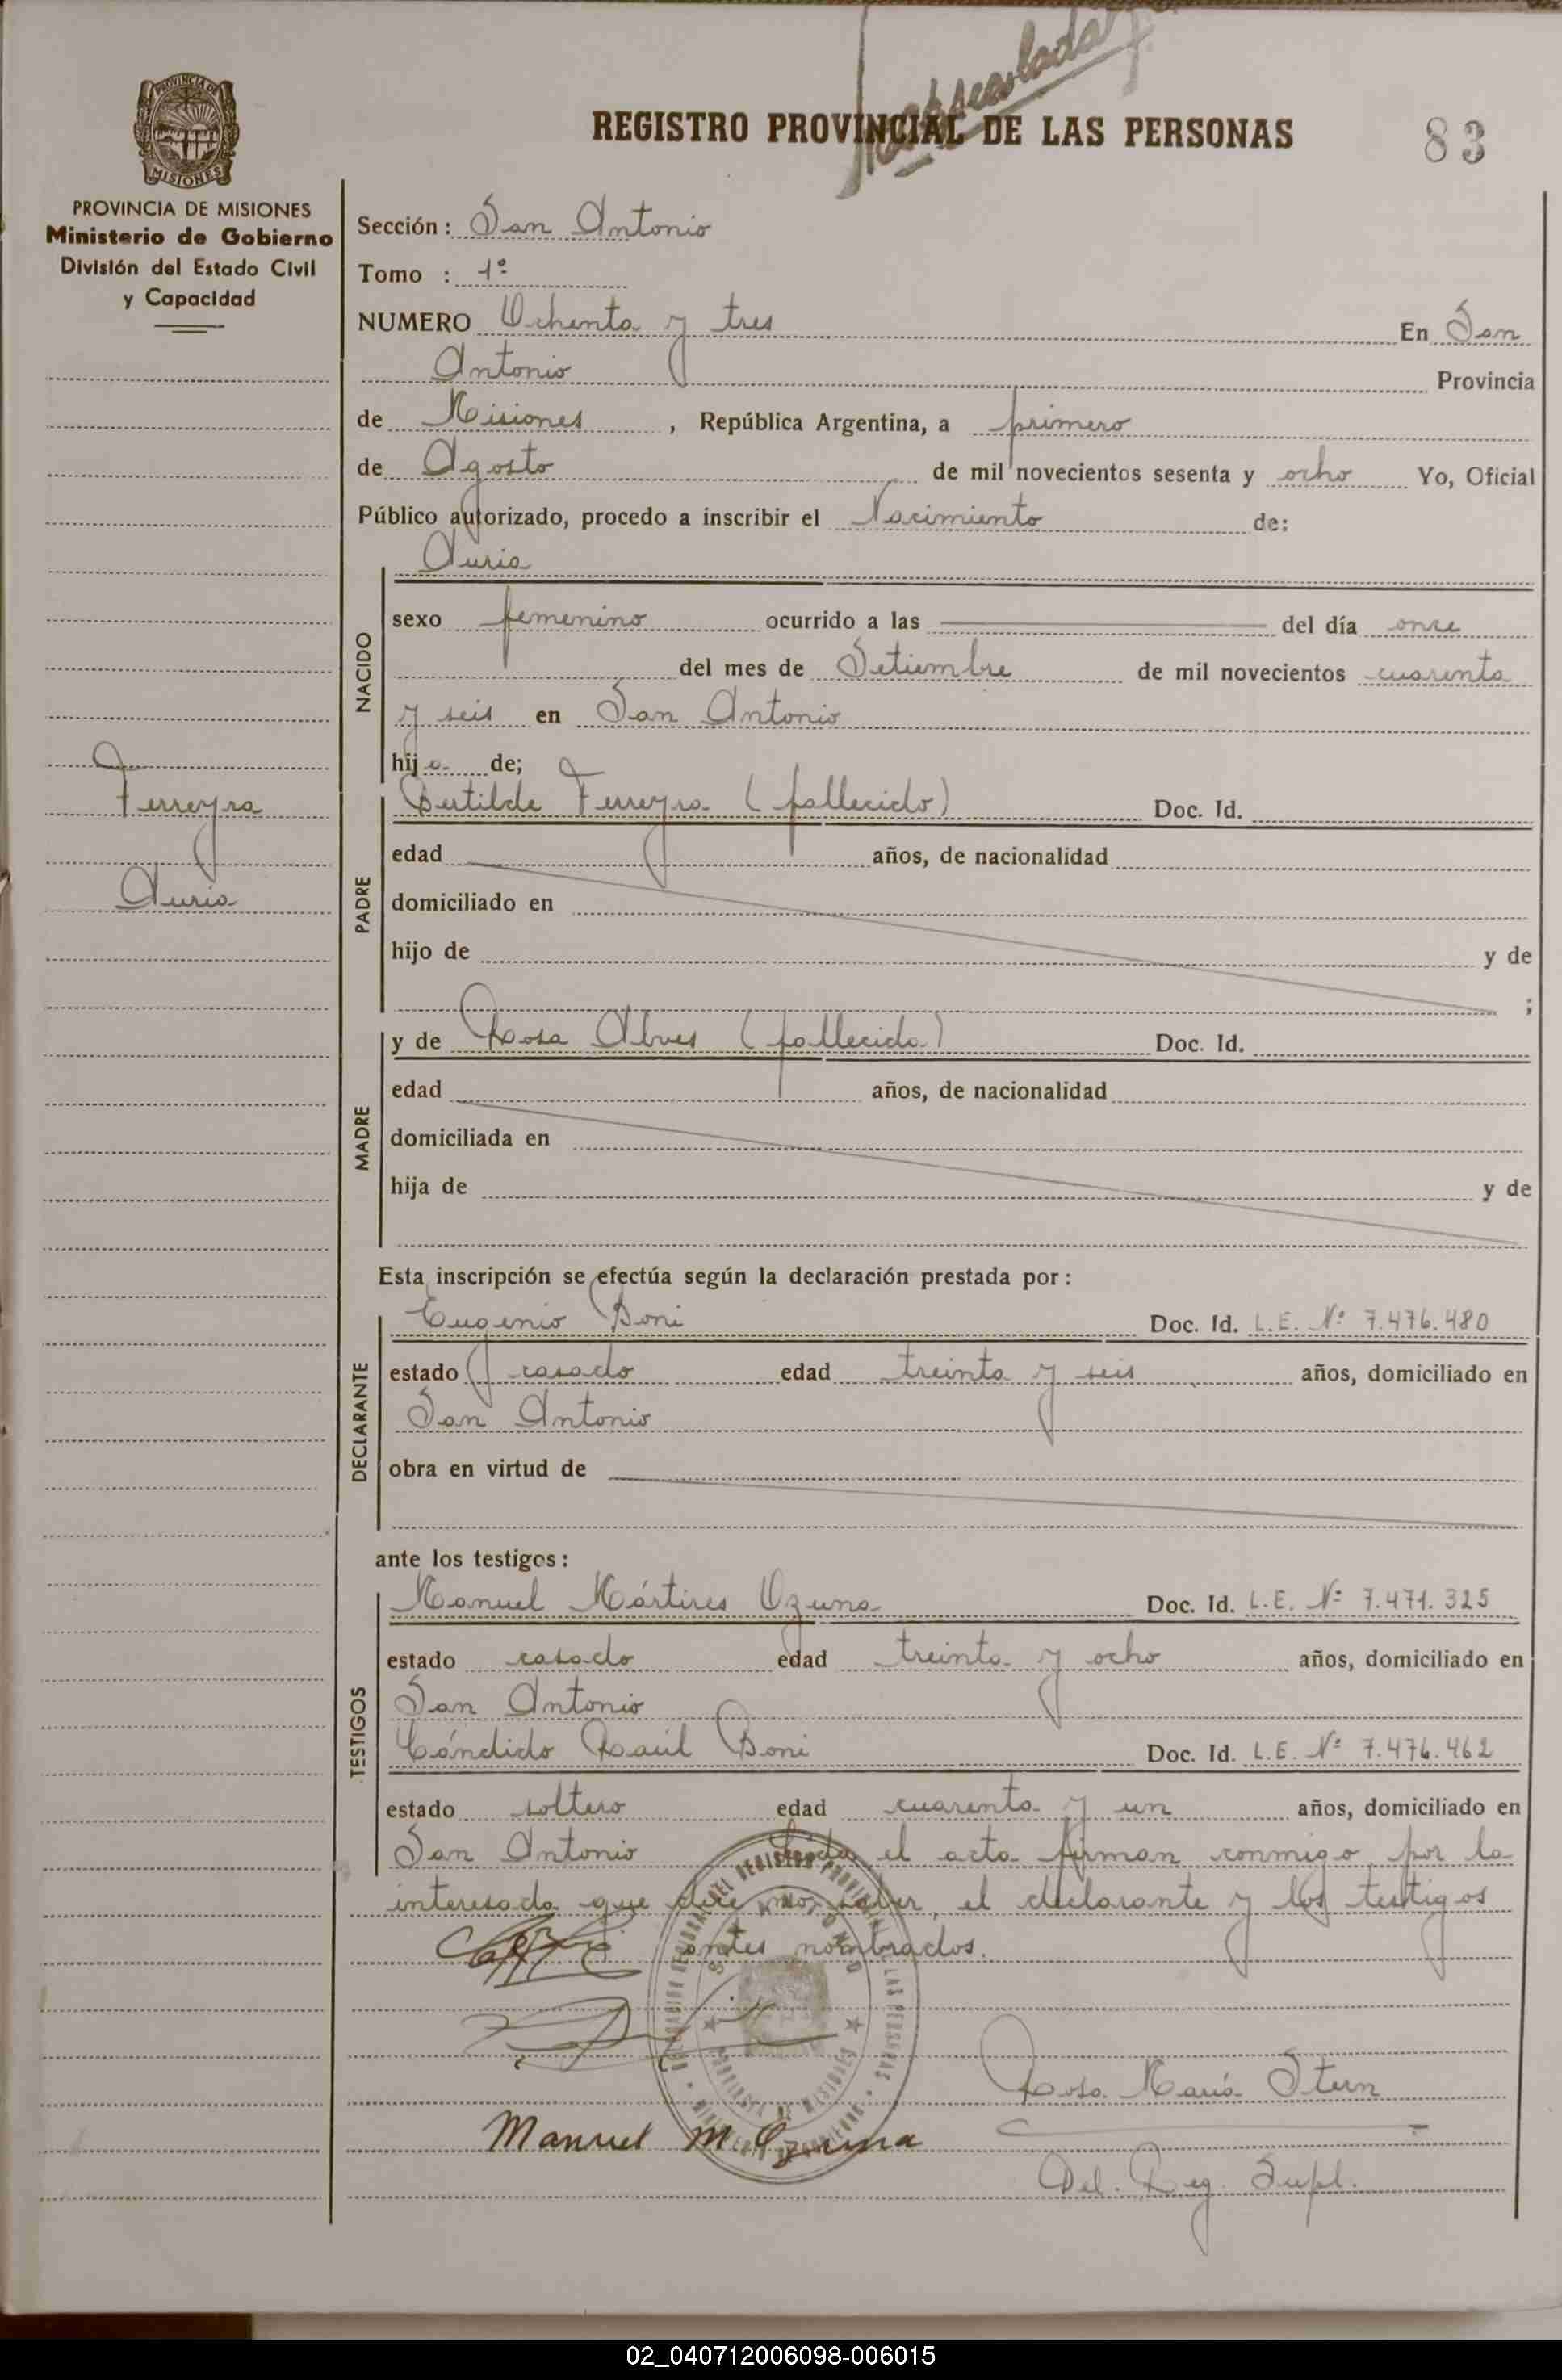 REGISTRO PROVINCIAL DE LAS PERSONAS
83
PROVINCIA DE MISIONES
Ministerio de Gobierno
División del Estado Civil
y Capacidad
Sección: San Antonio
Tomo : 1º
NUMERO Ochenta y tres En San
Antonio Provincia
de Misiones, República Argentina, a primero
de Agosto de mil novecientos sesenta y ocho Yo, Oficial
Público autorizado, procedo a inscribir el Nacimiento de:
Auria
NACIDO
sexo femenino ocurrido a las del día once
del mes de Setiembre de mil novecientos cuarenta
y seis en San Antonio
hija de;
Ferreyra
Auria
PADRE
Bertilde Ferreyra (fallecido) Doc. Id.
edad años, de nacionalidad
domiciliado en
hijo de y de
;
MADRE
y de Rosa Alves (fallecida) Doc. Id.
edad años, de nacionalidad
domiciliada en
hija de y de
Esta inscripción se efectúa según la declaración prestada por:
DECLARANTE
Eugenio Boni Doc. Id. L.E. Nº 7.476.480
estado casado edad treinta y seis años, domiciliado en
San Antonio
obra en virtud de
ante los testigos:
TESTIGOS
Manuel Mártires Ozuna Doc. Id. L.E. Nº 7.471.325
estado casado edad treinta y ocho años, domiciliado en
San Antonio
Cándido Raúl Boni Doc. Id. L.E. Nº 7.476.462
estado soltero edad cuarenta y un años, domiciliado en
San Antonio Leída el acta firman conmigo, por la
interesada que dice no saber, el declarante y los testigos
antes nombrados.
Rosa María Stern
Manuel M Ozuna
Del. Reg. Supl.
02_040712006098-006015